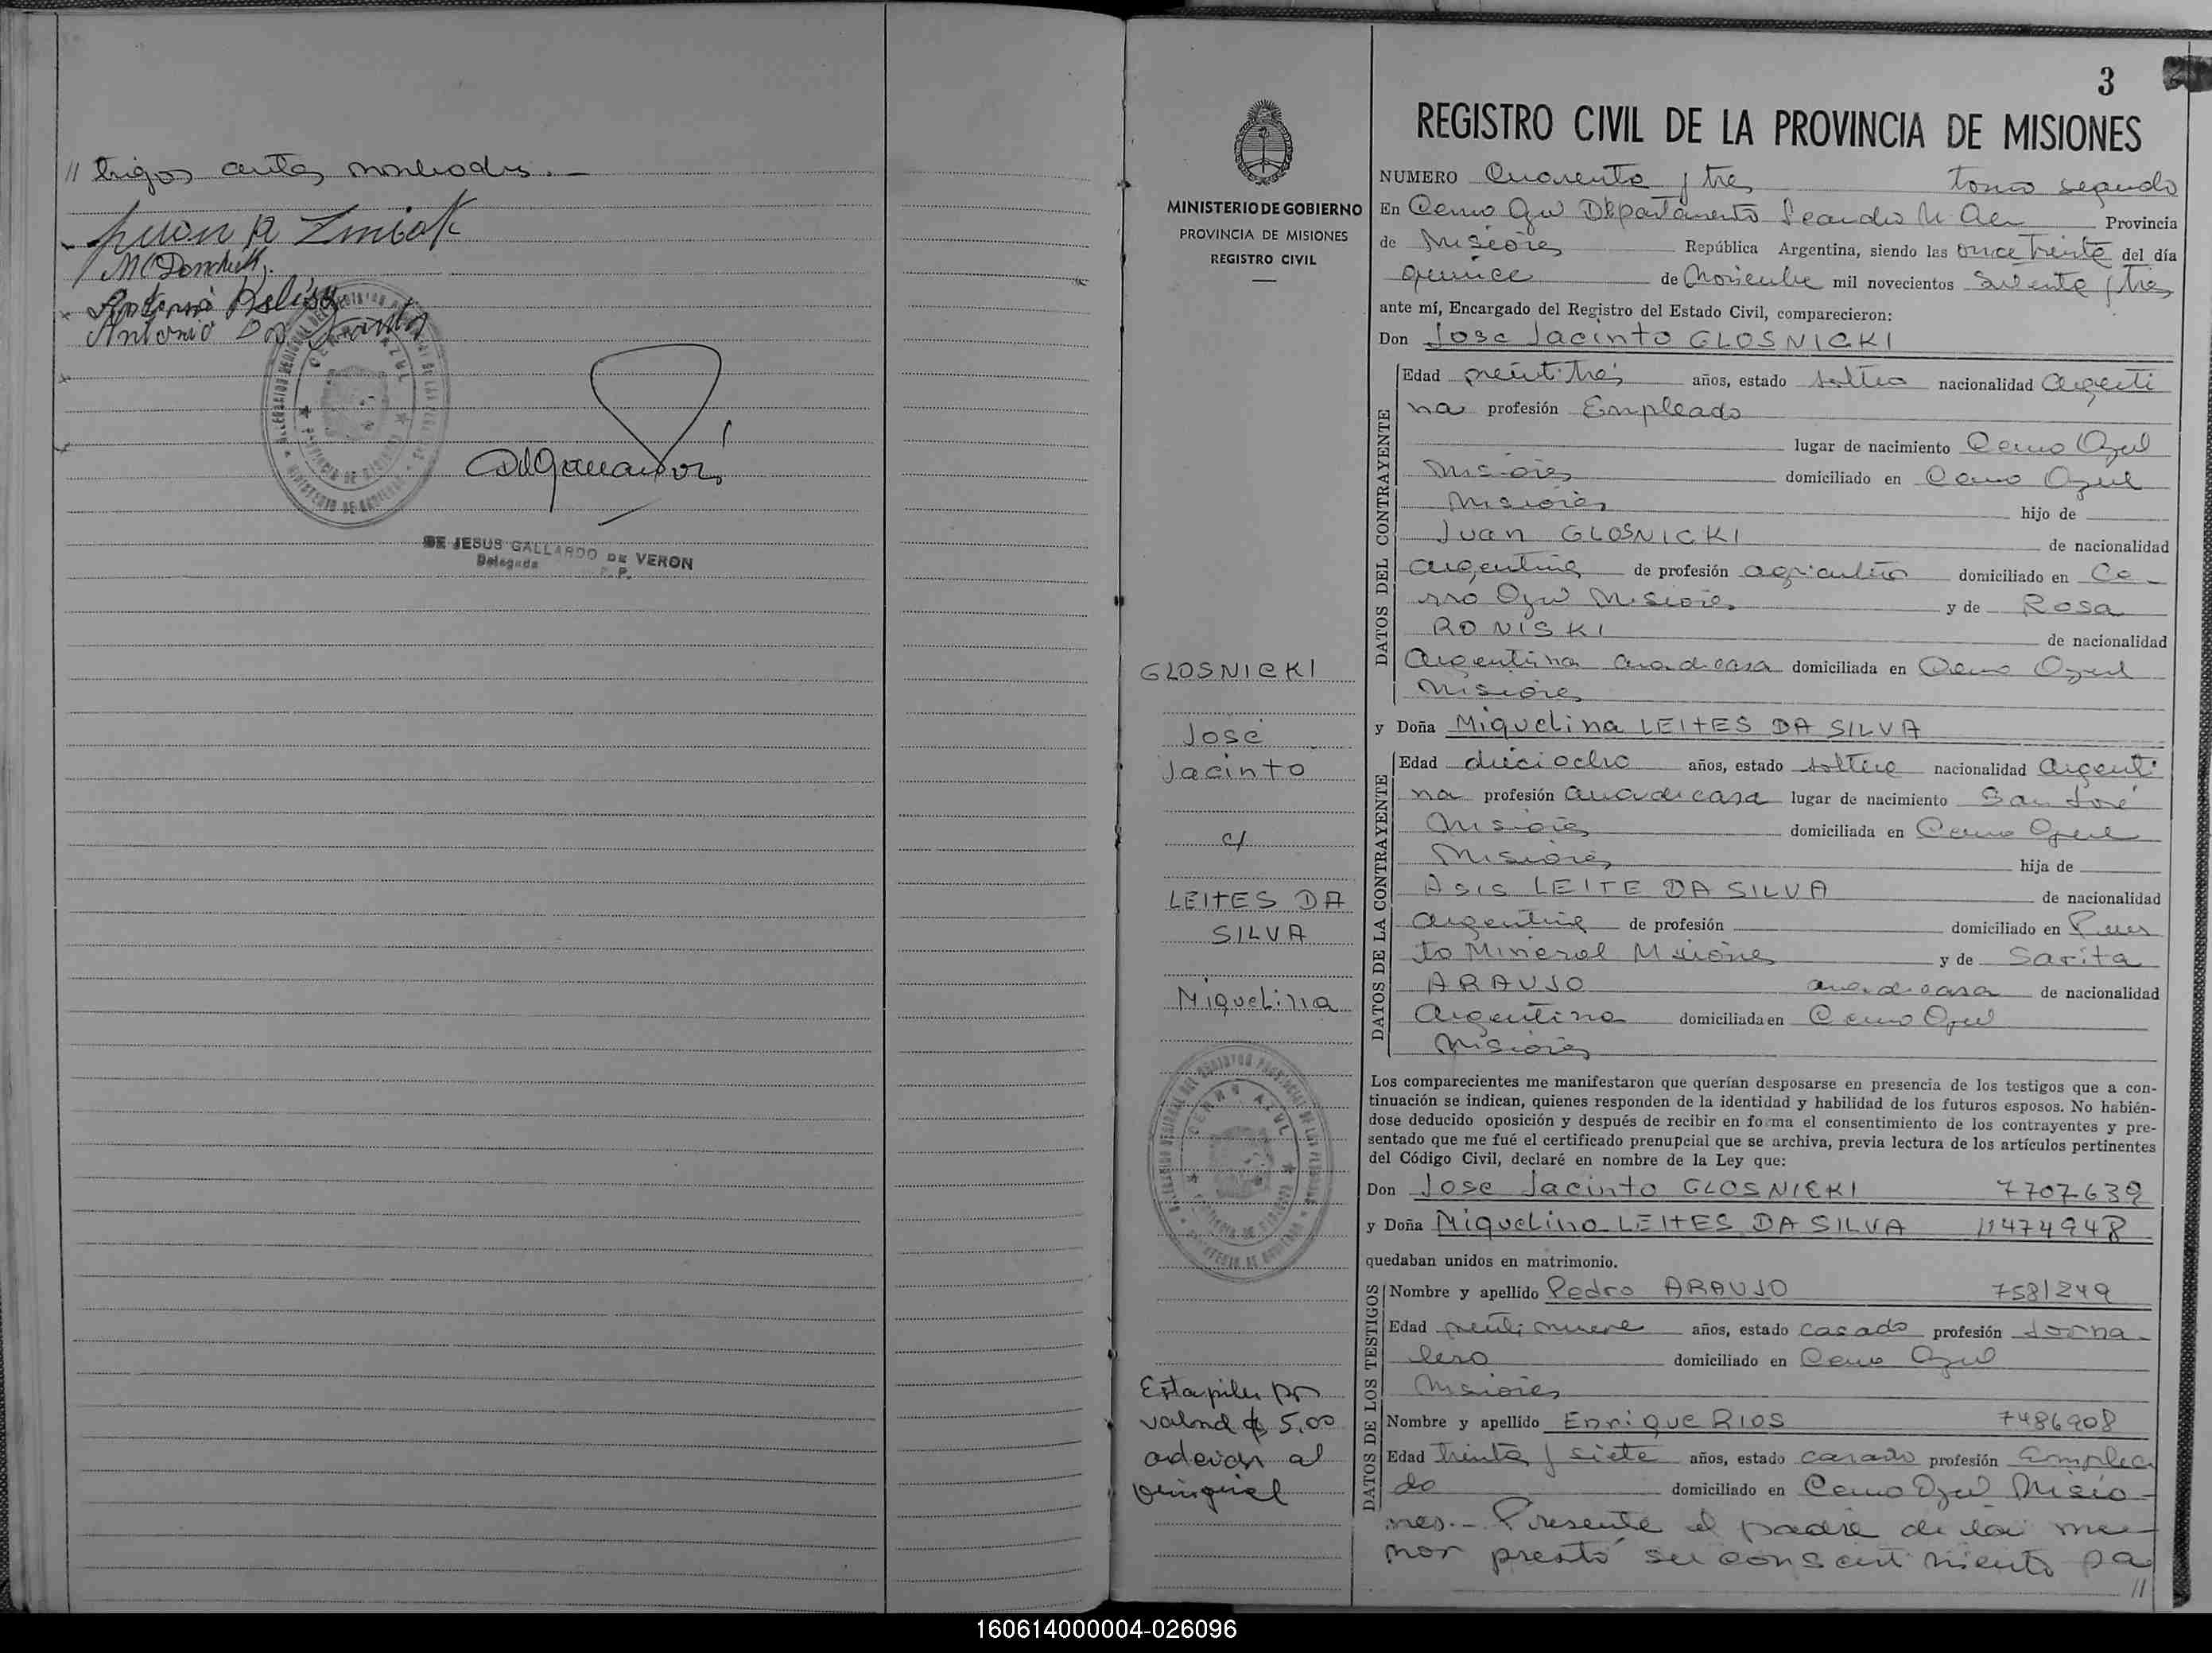 // tigos antes nombrados.-
Juan R Zmiak
Antonio Dos Santos
CERRO AZUL
DE JESUS GALLARDO DE VERON
Delegada P. P.
3
MINISTERIO DE GOBIERNO
PROVINCIA DE MISIONES
REGISTRO CIVIL
GLOSNICKI
José
Jacinto
c/
LEITES DA
SILVA
Miquelina
CERRO AZUL
Estapillas por
valor de $ 5,00
adheridas al
original
REGISTRO CIVIL DE LA PROVINCIA DE MISIONES
NUMERO Cuarenta y tres tomo segundo
En Cerro Azul Departamento Leandro N Alem Provincia
de Misiones República Argentina, siendo las once treinta del día
quince de Noviembre mil novecientos setenta y tres
ante mí, Encargado del Registro del Estado Civil, comparecieron:
Don Jose Jacinto GLOSNICKI
DATOS DEL CONTRAYENTE
Edad veintitres años, estado soltero nacionalidad Argenti
na profesión Empleado
lugar de nacimiento Cerro Azul
Misiones domiciliado en Cerro Azul
Misiones hijo de
Juan GLOSNICKI de nacionalidad
argentina de profesión agricultor domiciliado en Ce-
rro Azul Misiones y de Rosa
RONISKI de nacionalidad
Argentina ama de casa domiciliada en Cerro Azul
Misiones
y Doña Miquelina LEITES DA SILVA
DATOS DE LA CONTRAYENTE
Edad dieciocho años, estado soltera nacionalidad Argenti
na profesión ama de casa lugar de nacimiento San José
Misiones domiciliada en Cerro Azul
Misiones hija de
Asis LEITE DA SILVA de nacionalidad
argentina de profesión domiciliado en Puer
to Mineral Misiones y de Sarita
ARAUJO ama de casa de nacionalidad
Argentina domiciliada en Cerro Azul
Misiones
Los comparecientes me manifestaron que querían desposarse en presencia de los testigos que a con-
tinuación se indican, quienes responden de la identidad y habilidad de los futuros esposos. No habién-
dose deducido oposición y después de recibir en forma el consentimiento de los contrayentes y pre-
sentado que me fué el certificado prenupcial que se archiva, previa lectura de los artículos pertinentes
del Código Civil, declaré en nombre de la Ley que:
Don Jose Jacinto GLOSNICKI 7707639
y Doña Miquelina LEITES DA SILVA 11474948
quedaban unidos en matrimonio.
DATOS DE LOS TESTIGOS
Nombre y apellido Pedro ARAUJO 7581249
Edad veintinueve años, estado casado profesión Jorna-
lero domiciliado en Cerro Azul
Misiones
Nombre y apellido Enrique RIOS 7486908
Edad treinta y siete años, estado casado profesión Emplea
do domiciliado en Cerro Azul Misio-
nes.- Presente el padre de la me-
nor prestó su consentimiento pa
//
160614000004-026096